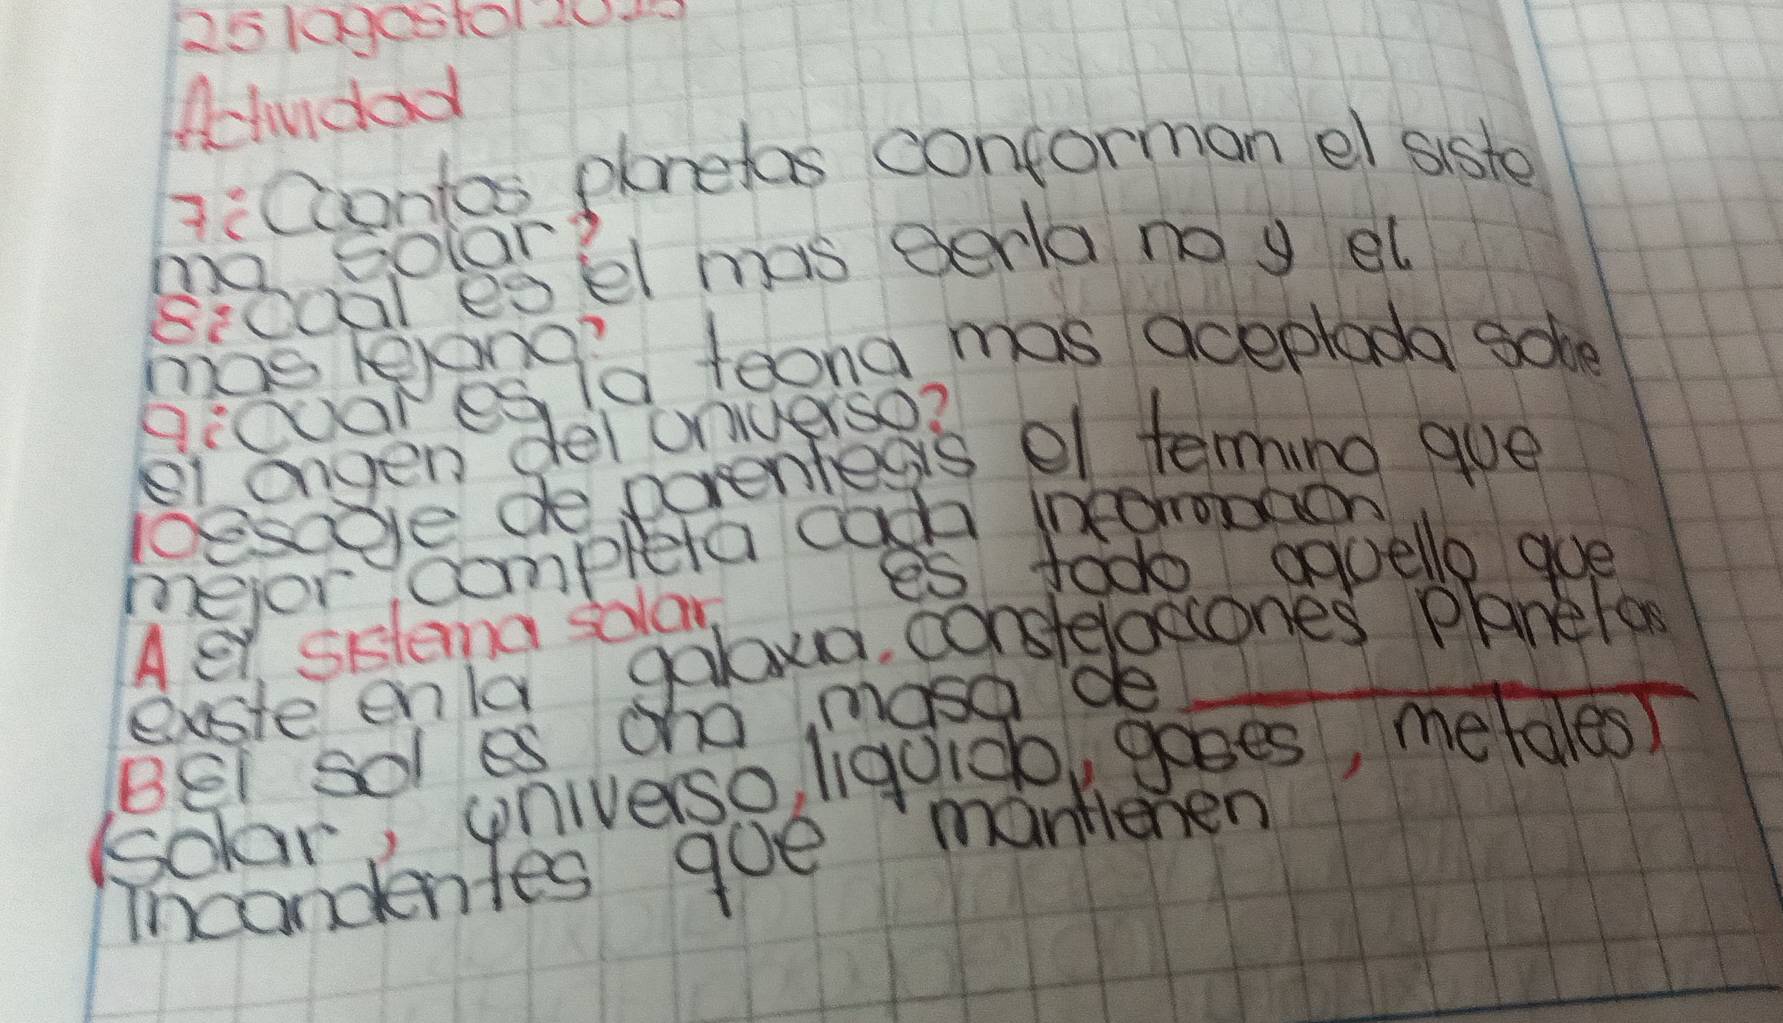 25 |agosto|
Actividad
7¿Cuantos planetas conforman el siste
ma solar?
8¿cual es el mas serla no y el
mas lejano?
9¿cual es la teoria mas aceptada sobre
el origen del universo?
10 escoge de parentesis el termino que
mejor completa cada informacion
A El sistema solar es todo aquello que
existe en la galaxia. constelaciones planetas
B El sol es una masa de ________
(solar, universo, liquido, gases, metales)
incandentes que mantienen